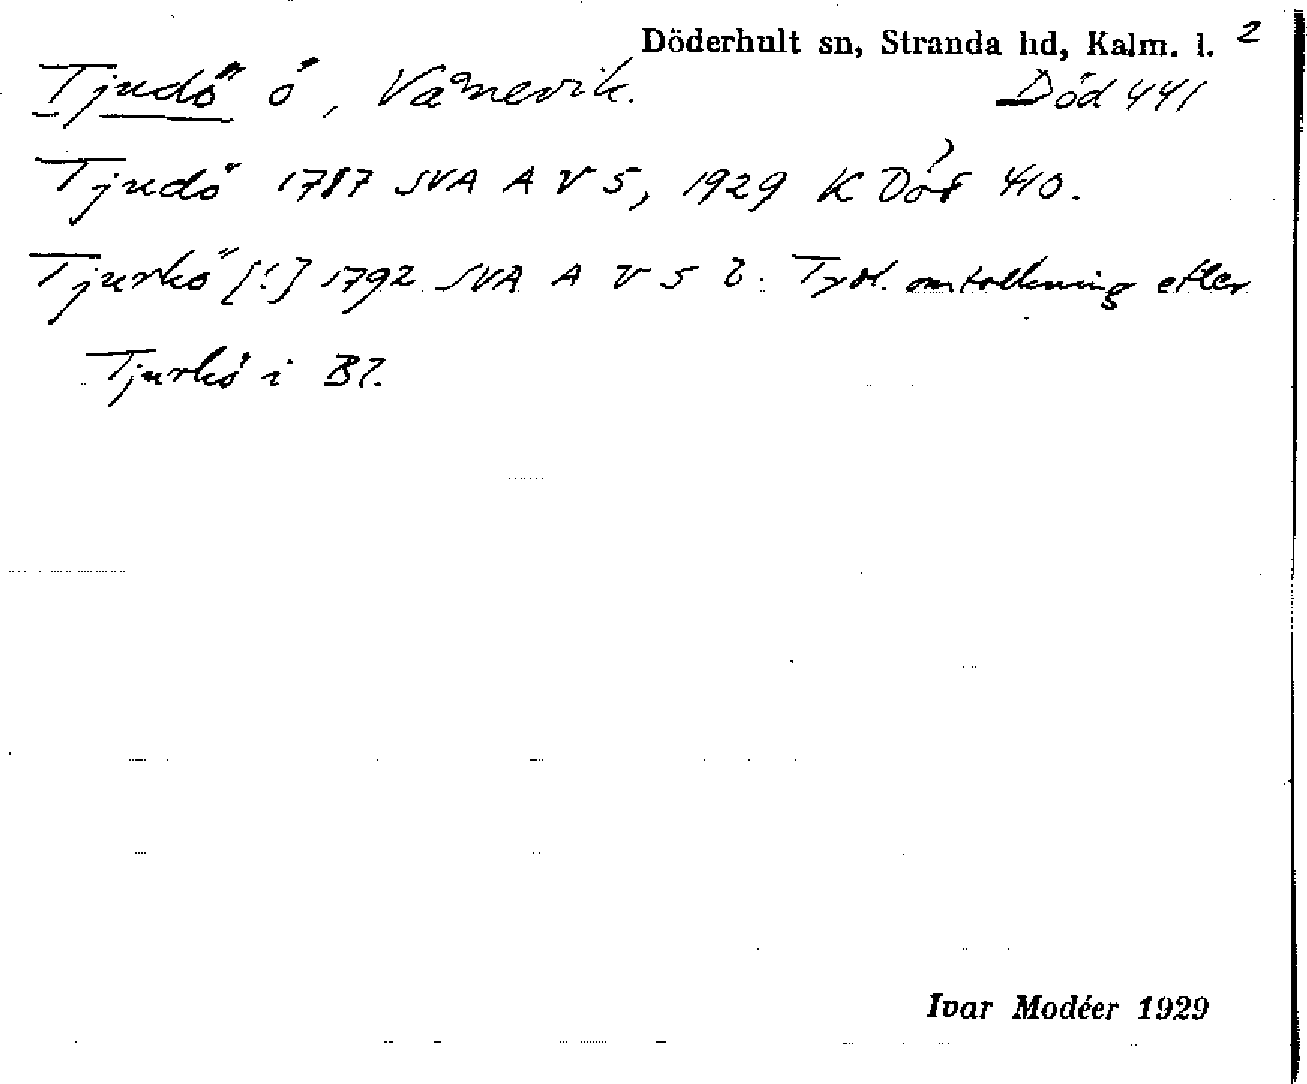 Döderhult sn, Stranda hd, Kalm. l. 2
Tjudö ö, Vånevik. Död 441
Tjudö 1787 SVA A V 5, 1929 K Död 440.
Tjurkö [!] 1792 SVA A V 5 b. Tydl. omtolkning efter
Tjurkö i Bl.
Ivar Modéer 1929